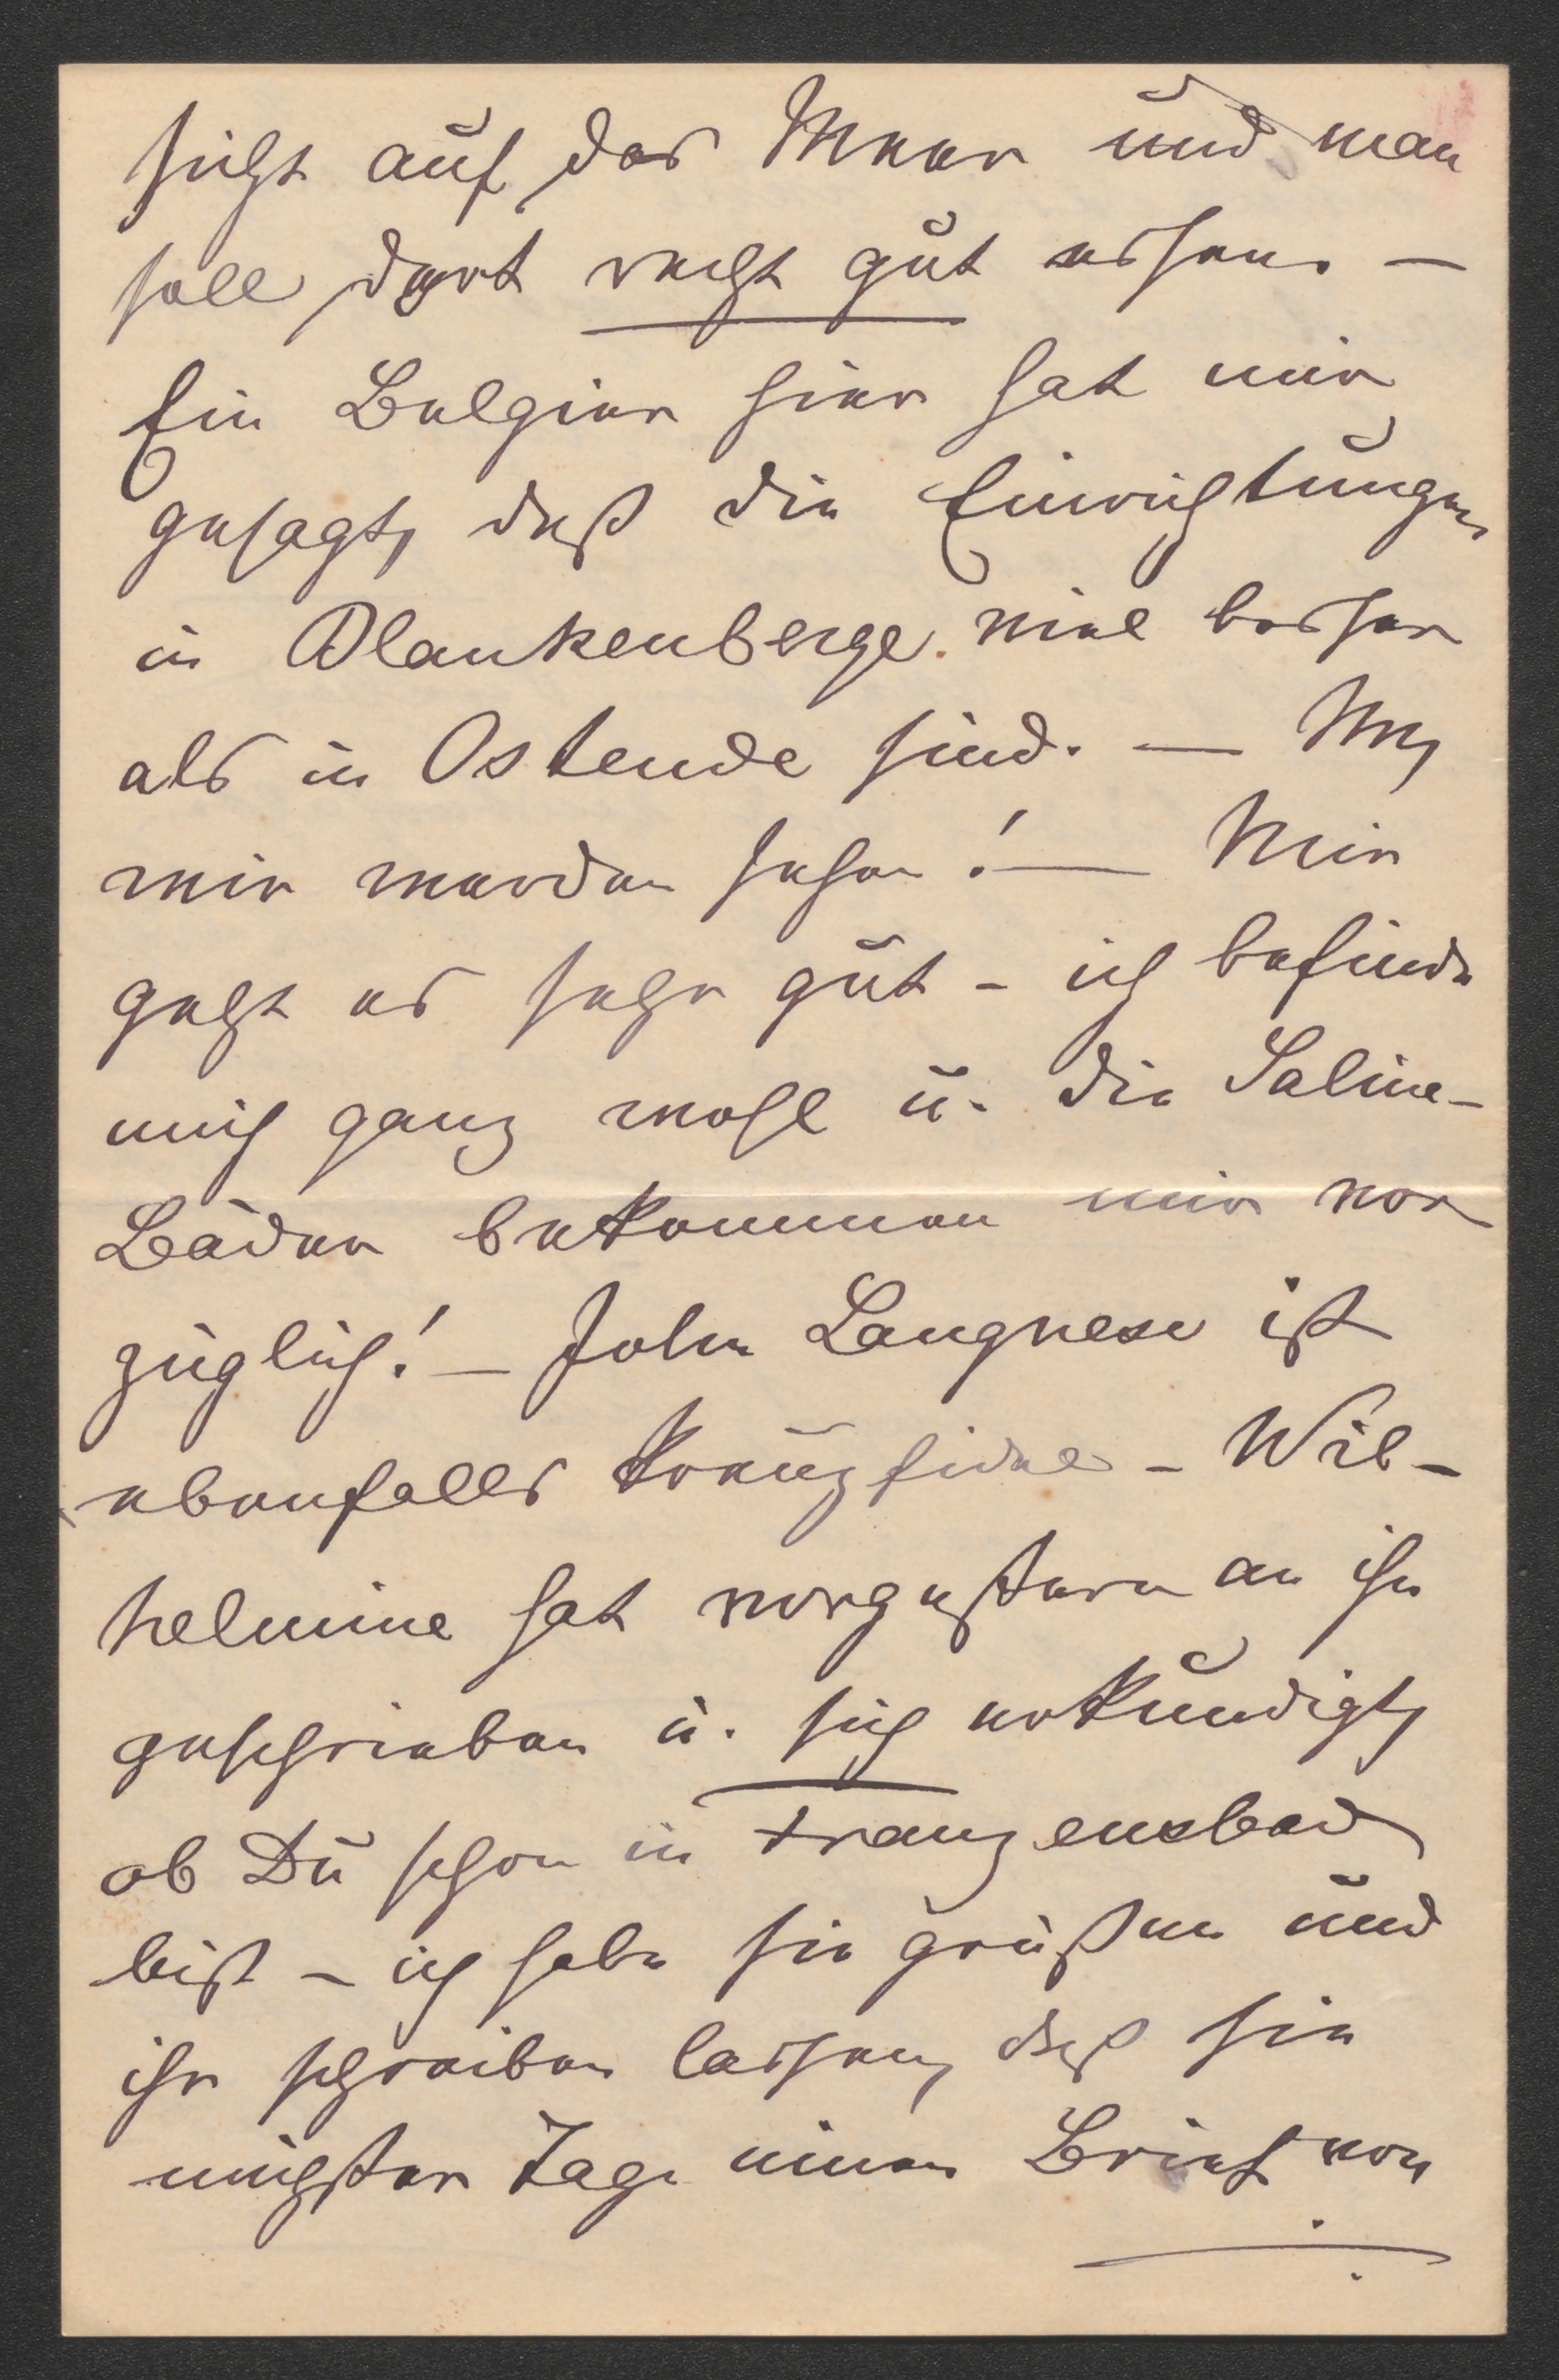 sicht auf das Meer und man
soll dort recht gut essen. —
Ein Belgier hier hat mir
gesagt, daß die Einrichtungen
in Blankenberge viel besser
als in Ostende sind. — Na,
wir werden sehen! — Mir
geht es sehr gut - ich befinde
mich ganz wohl u. die Saline-
Bäder bekommen mir vor
züglich! — John Langnese ist
ebenfalls kreuzfidel - Wil-
helmine hat vorgestern an ihn
geschrieben u. sich erkundigt,
ob Du schon in Franzensbad
bist - ich habe sie grüßen und
ihr schreiben lassen, daß sie
nächster Tage einen Brief von